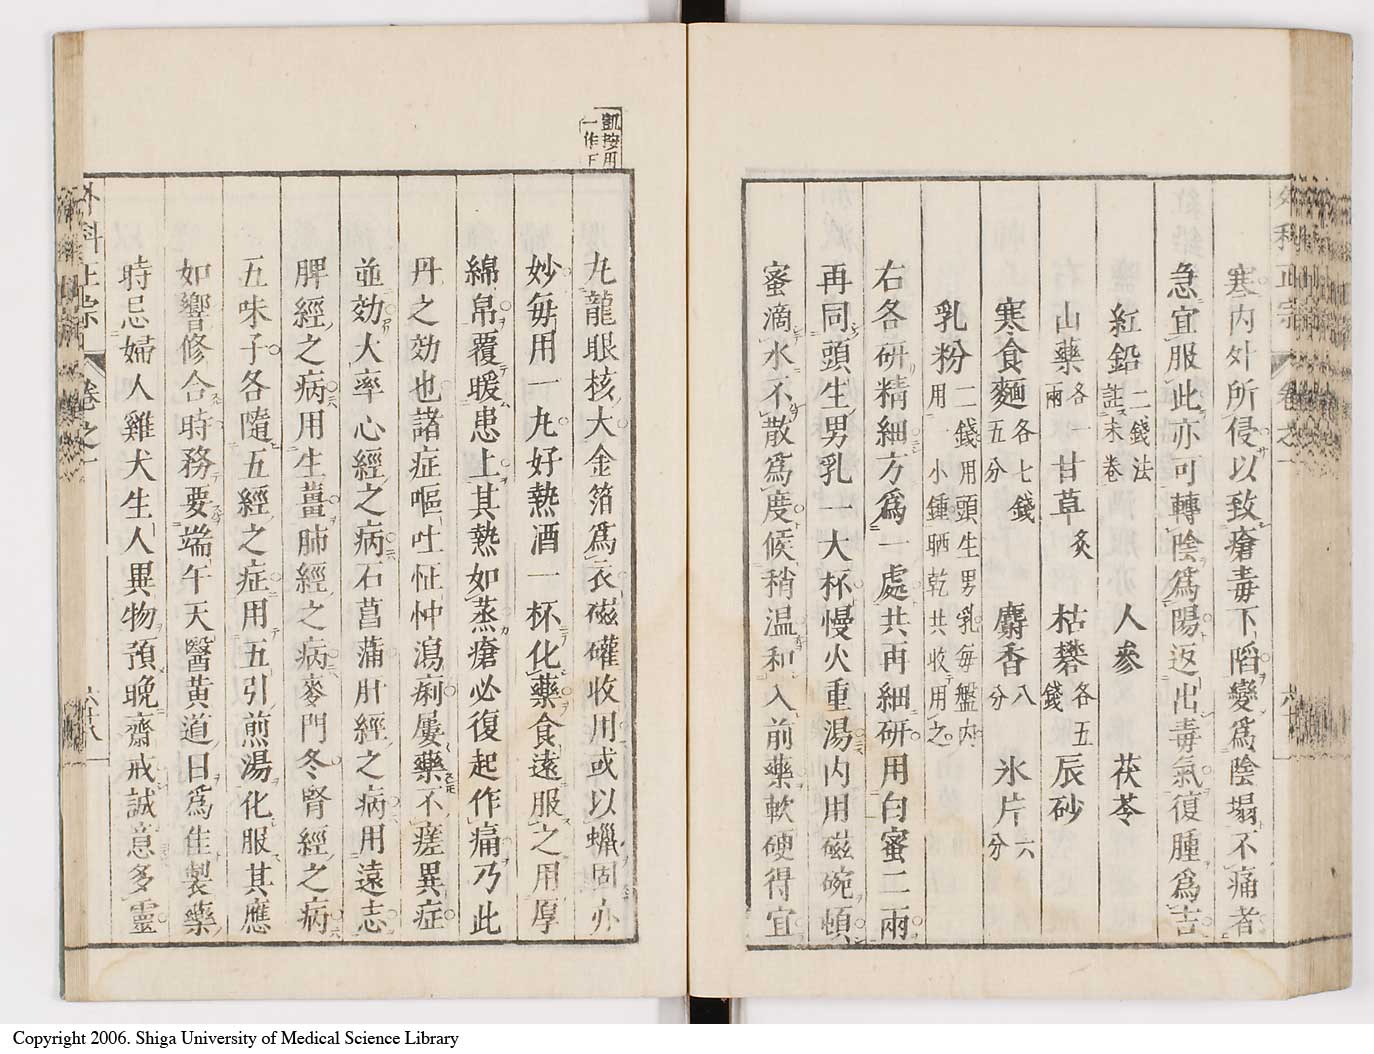 寒内外所侵以致瘡毒下陷變爲陰塌不痛者
急宜服此亦可轉陰爲陽返出毒氣復腫爲吉
紅鉛二錢法註末卷　人參　茯苓
山藥各一兩　甘草炙　枯礬各五錢　辰砂
寒食麵各七錢五分　麝香八分　氷片六分
乳粉二錢用頭生男乳每盤内用一小鍾晒乾共收用之
右各研精細方爲一處共再細研用白蜜二兩
再同頭生男乳一大杯慢火重湯内用磁碗頓
蜜滴水不散爲度候稍温和入前藥軟硬得宜
凱按用
一作下
丸龍眼核大金箔爲衣磁礶收用或以蠟固亦
妙每用一丸好熱酒一杯化藥食遠服之用厚
綿帛覆暖患上其熱如蒸瘡必復起作痛乃此
丹之効也諸症嘔吐怔忡瀉痢屢藥不瘥異症
並効大率心經之病石菖蒲肝經之病用遠志
脾經之病用生薑肺經之病麥門冬腎經之病
五味子各隨五經之症用五引煎湯化服其應
如響修合時務要端午天醫黄道日爲佳製藥
時忌婦人雞犬生人異物預晚齋戒誠意多靈
外科正宗　卷之一
Copyright 2006. Shiga University of Medical Science Library